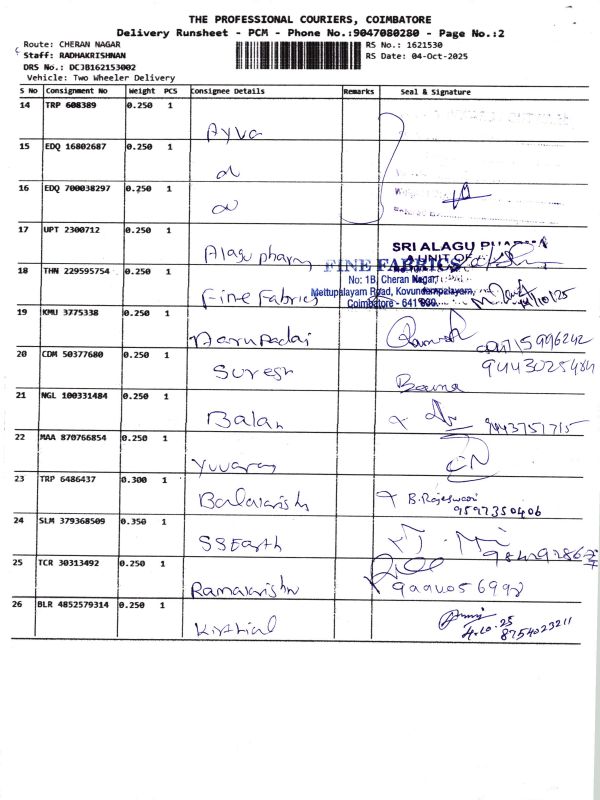 THE PROFESSIONAL COURIERS, COIMBATORE
Delivery Runsheet - PCM - Phone No.:9047080280 - Page No.:2
Route: CHERAN NAGAR
RS No.: 1621530
Staff: RADHAKRISHNAN
RS Date: 04-Oct-2025
DRS No.: DCJB162153002
Vehicle: Two Wheeler Delivery
S No Consignment No Weight PCS Consignee Details Remarks Seal & Signature
14 TRP 608389 0.250 1
Ayva
15 EDQ 16802687 0.250 1
16 EDQ 700038297 0.250 1
17 UPT 2300712 0.250 1
Alagu pharm
SRI ALAGU PHARMA
A UNIT OF
18 THN 229595754 0.250 1
Fine Fabrics
FINE FABRICS
No: 1B, Cheran Nagar,
Mettupalayam Road, Kovundampalayam,
Coimbatore - 641 030.
19 KMU 3775338 0.250 1
Aarupadai
20 CDM 50377680 0.250 1
Suresh
9443025484
21 NGL 100331484 0.250 1
Balan
9443751715
22 MAA 870766854 0.250 1
Yuvaraj
23 TRP 6486437 0.300 1
Balakrish
B. Rajeswari
9597350406
24 SLM 379368509 0.350 1
SS Earth
25 TCR 30313492 0.250 1
Ramakrishn
26 BLR 4852579314 0.250 1
4.10.25
8754023211